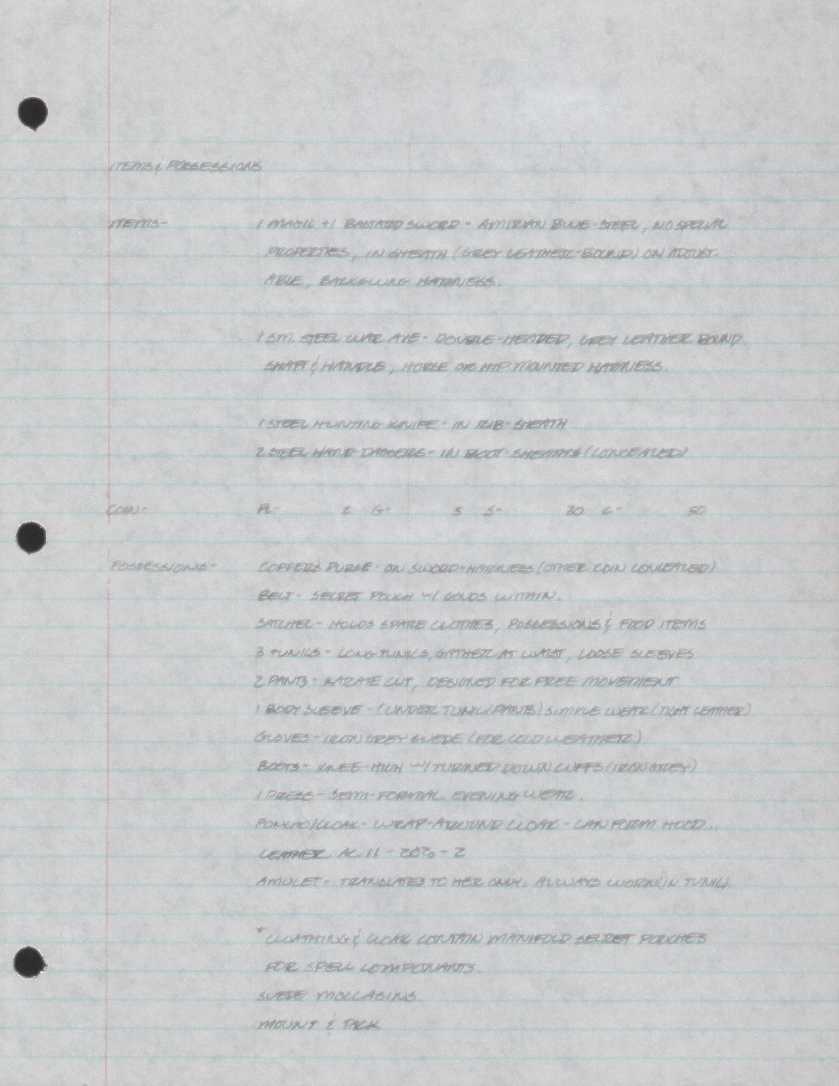 ITEMS & POSSESSIONS
ITEMS- 1 MAGIC +1 BASTARD SWORD - AMIRIAN BLUE-STEEL, NO SPECIAL
PROPERTIES, IN SHEATH (GREY LEATHER-BOUND) ON ADJUST-
ABLE, BACKSLUNG HARNESS.
1 SM. STEEL WAR AXE - DOUBLE-HEADED, GREY LEATHER BOUND
SHAFT & HANDLE, HORSE OR HIP MOUNTED HARNESS.
1 STEEL HUNTING KNIFE - IN RIB-SHEATH
2 STEEL HAND DAGGERS - IN BOOT-SHEATHS (CONCEALED)
COIN- PL- 2 G- 5 S- 20 C- 50
POSSESSIONS- COPPERS PURSE - ON SWORD-HARNESS (OTHER COIN CONCEALED)
BELT - SECRET POUCH W/ GOLDS WITHIN.
SATCHEL - HOLDS SPARE CLOTHES, POSSESSIONS & FOOD ITEMS
3 TUNICS - LONG TUNICS, GATHER AT WAIST, LOOSE SLEEVES
2 PANTS - KARATE CUT, DESIGNED FOR FREE MOVEMENT
1 BODY SLEEVE - (UNDER TUNIC/PANTS) SIMPLE WEAR (TIGHT LEATHER)
GLOVES - IRON GREY SUEDE (FOR COLD WEATHER)
BOOTS - KNEE-HIGH W/ TURNED DOWN CUFFS (IRON GREY)
1 DRESS - SEMI-FORMAL EVENING WEAR.
PONCHO/CLOAK - WRAP-AROUND CLOAK - CAN FORM HOOD..
LEATHER AC 11 - 20% - 2
AMULET - TRANSLATES TO HER ONLY. ALWAYS WORN (IN TUNIC)
* CLOATHING & CLOAK CONTAIN MANIFOLD SECRET POUCHES
FOR SPELL COMPONANTS.
SUEDE MOCCASINS
MOUNT & TACK